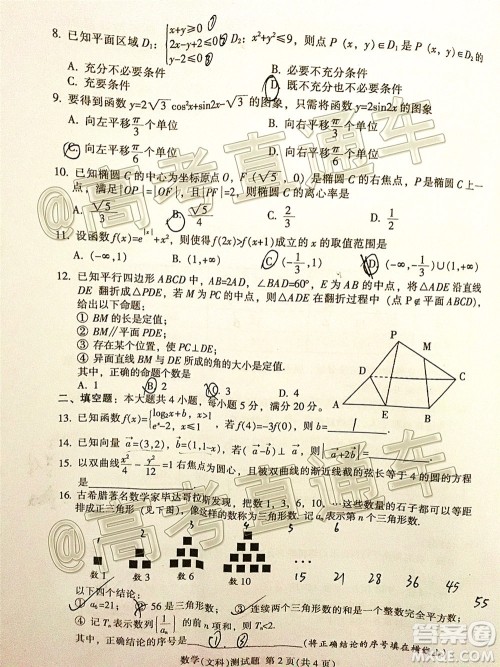 8. 已知平面区域 D₁: {x+y≥0 ① 2x-y+2≤0 ② y-2≤0 ③ D₂: x²+y²≤9，则点 P (x, y)∈D₁ 是 P (x, y)∈D₂的
A. 充分不必要条件 B. 必要不充分条件
C. 充要条件 D. 既不充分也不必要条件
9. 要得到函数 y=2√3 cos²x+sin2x-√3 的图象，只需将函数 y=2sin2x 的图象
A. 向左平移 π/3 个单位 B. 向右平移 π/3 个单位
C. 向左平移 π/6 个单位 D. 向右平移 π/6 个单位
10. 已知椭圆 C 的中心为坐标原点 O，F (√5, 0) 是 C 的右焦点，P 是椭圆 C 上一
点，满足|OP|=|OF|，且|PF|=2，则椭圆 C 的离心率是
A. √5/3 B. √5/4 C. 2/3 D. 1/3
11. 设函数 f(x)=e^|x|+x²，则使得 f(2x)>f(x+1)成立的 x 的取值范围是
A. (-∞,1) B. (1,+∞) C. (-1/3,1) D. (-∞,-1/3)∪(1,+∞)
12. 已知平行四边形 ABCD 中，AB=2AD，∠BAD=60°，E 为 AB 的中点，将△ADE 沿直线
DE 翻折成△PDE，若 M 为 PC 的中点，则△ADE 在翻折过程中（点 P∉平面 ABCD），
给出以下命题：
① BM 的长是定值；
② BM∥平面 PDE；
③ 存在某个位置，使 PC⊥DE；
④ 异面直线 BM与 PD 所成的角的大小是定值.
其中，正确的命题个数是
A. 1 B. 2 C. 3 D. 4
P M D C A E B
二、填空题：本大题共 4 小题，每小题 5 分，满分 20 分。
13. 已知函数 f(x)={log₂x+b, x>1 eˣ-2, x≤1，若 f(4)=-3f(0)，则 b= 1 .
14. 已知向量 a=(3,2)，则|a+2b|=
15. 以双曲线 x²/4 - y²/12 =1 右焦点为圆心，且被双曲线的渐近线截的弦长等于 4 的圆的方程是
16. 古希腊著名数学家毕达哥拉斯发现，把数 1，3，6，10，… 这些数量的石子都可以等距
排成正三角形（见下图），像这样的数称为三角形数. 记 aₙ 表示第 n 个三角形数.
1 2 3 4 5 6
数 1 数 3 数 6 数 10 15 21 28 36 45 55
以下四个结论：
① a₆=21；② 56 是三角形数；③ 连续两个三角形数的和一定是一个完全平方数；
(将正确结论的序号填在横线上)
数学(文科)测试题 第 2 页(共 4 页)
@高考直通车
@高考直通车
作业帮